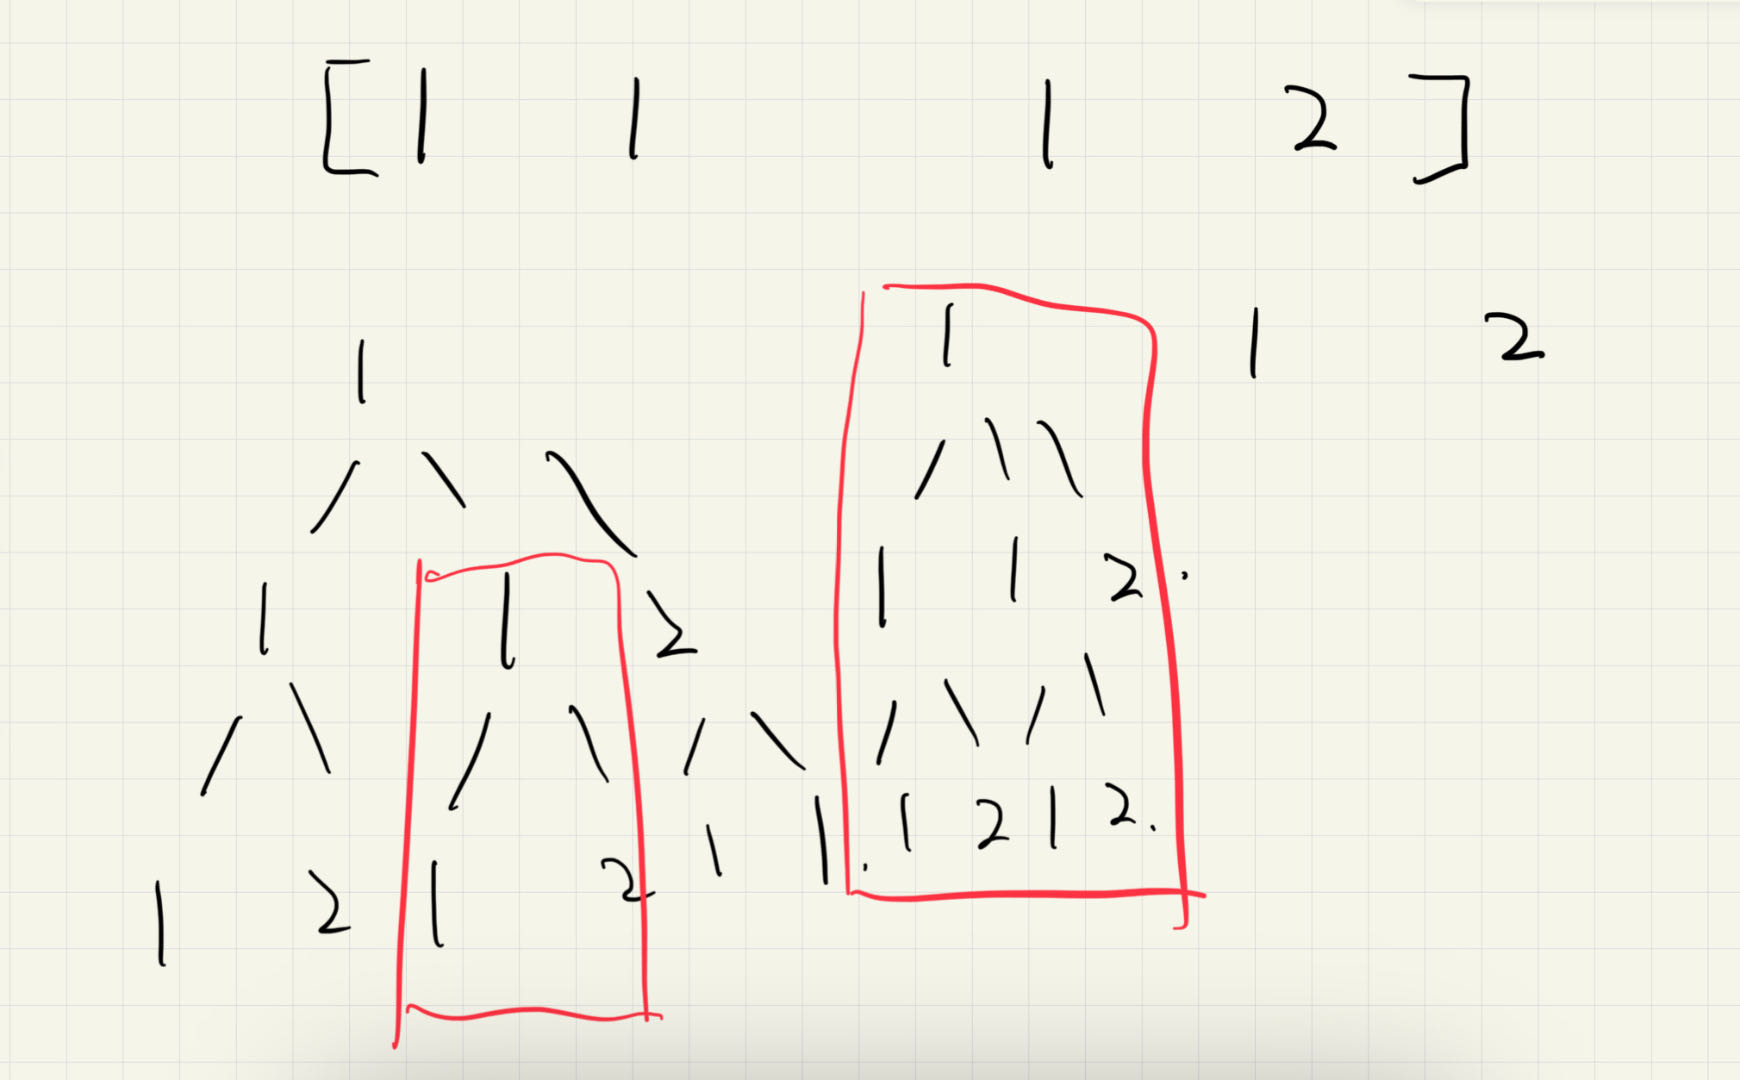 [1 1 1 2]
1 1 2
1
1 1 2.
1 1 2
1 2 1 2.
1 1.
1 2 1 2